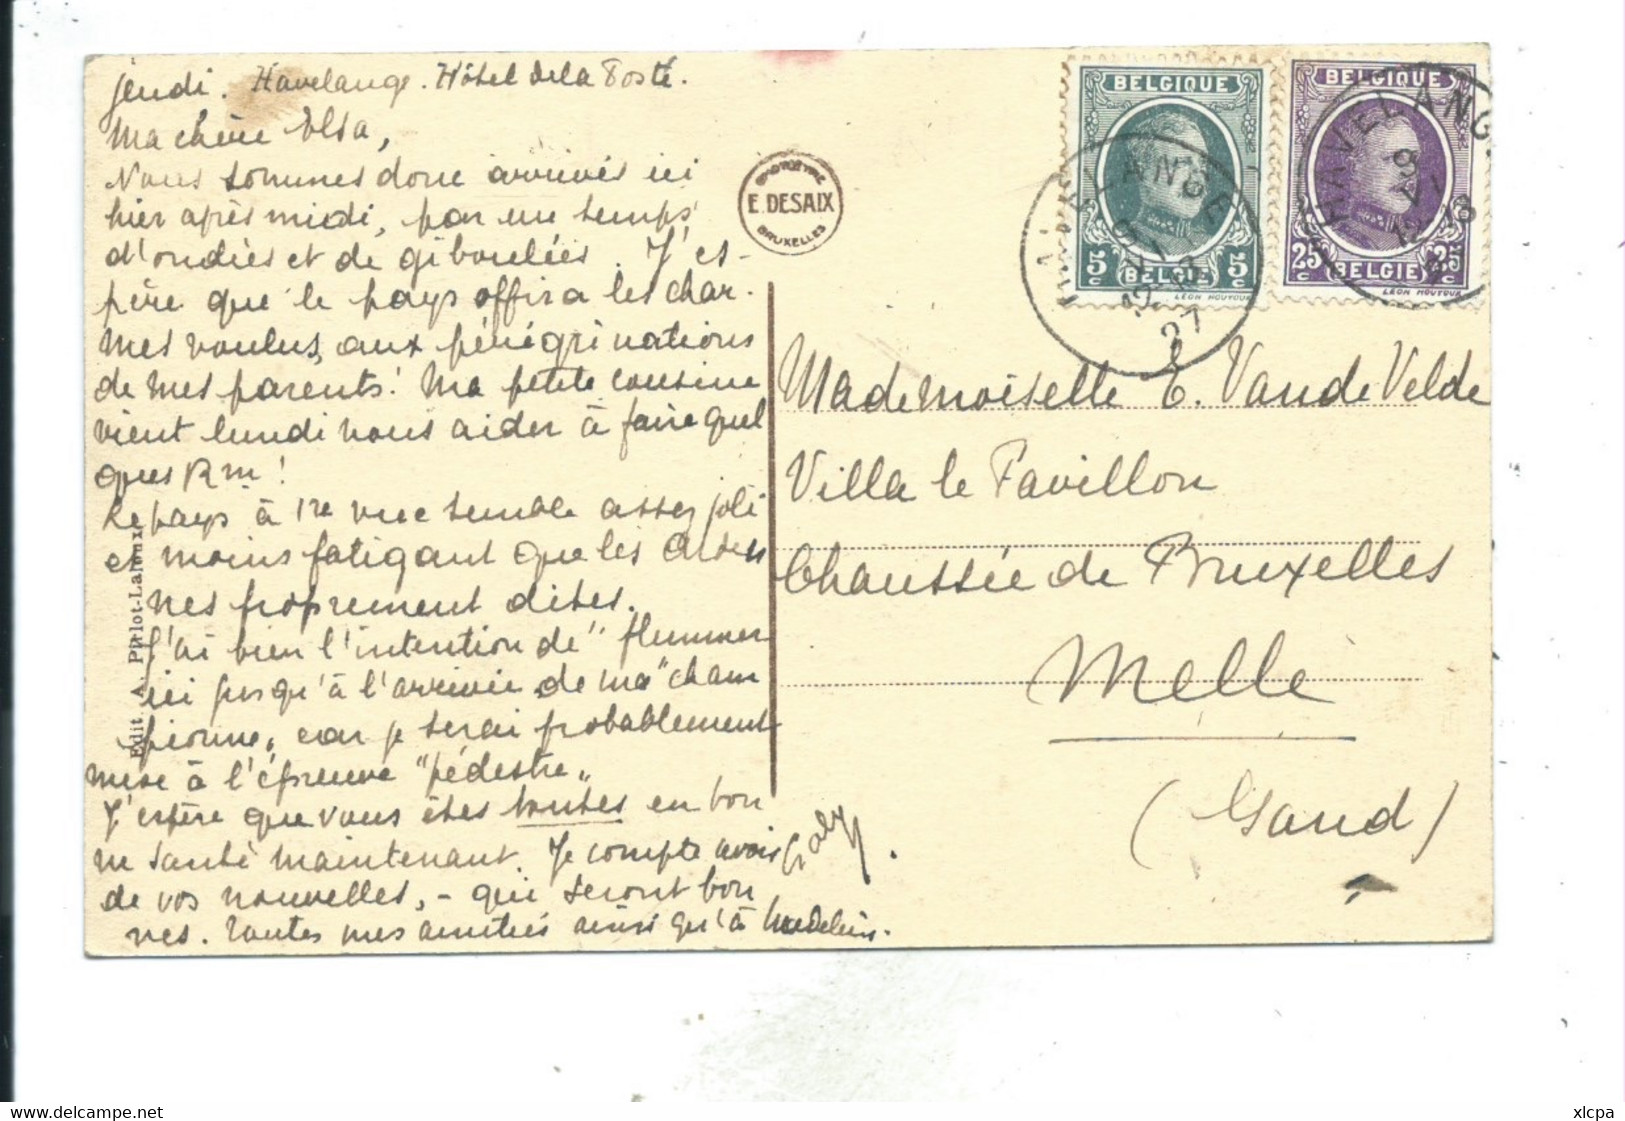 jeudi. Havelange. Hôtel de la Poste.
Ma chère Elsa,
Nous sommes donc arrivés ici
hier après midi, par un temps
d'ondées et de giboulées. J'es-
père que le pays offrira les char-
mes voulus, aux pérégrinations
de mes parents! Ma petite cousine
vient lundi nous aider à faire quel
ques Km!
Le pays à 1re vue semble assez joli
et moins fatigant que les Arden
nes proprement dites.
J'ai bien l'intention de "flemmer
ici jusqu'à l'arrivée de ma "cham
pionne" car je serai probablement
mise à l'épreuve "pédestre"
J'espère que vous êtes toutes en bon
ne santé maintenant. Je compte avoir
de vos nouvelles, - qui seront bon
nes. Toutes mes amitiés ainsi qu'à Madeleine.
Gaby.
Edit. A. Pirlot-Laloux
PHOTOTYPIE
E. DESAIX
BRUXELLES
BELGIQUE
5 c 5 c
BELGIË
LÉON HOUYOUX
BELGIQUE
25 c 25 c
BELGIË
LÉON HOUYOUX
HAVELANGE
27
HAVELANGE
Mademoiselle E. Van de Velde
Villa le Pavillon
Chaussée de Bruxelles
Melle
(Gand)
www.delcampe.net
xlcpa